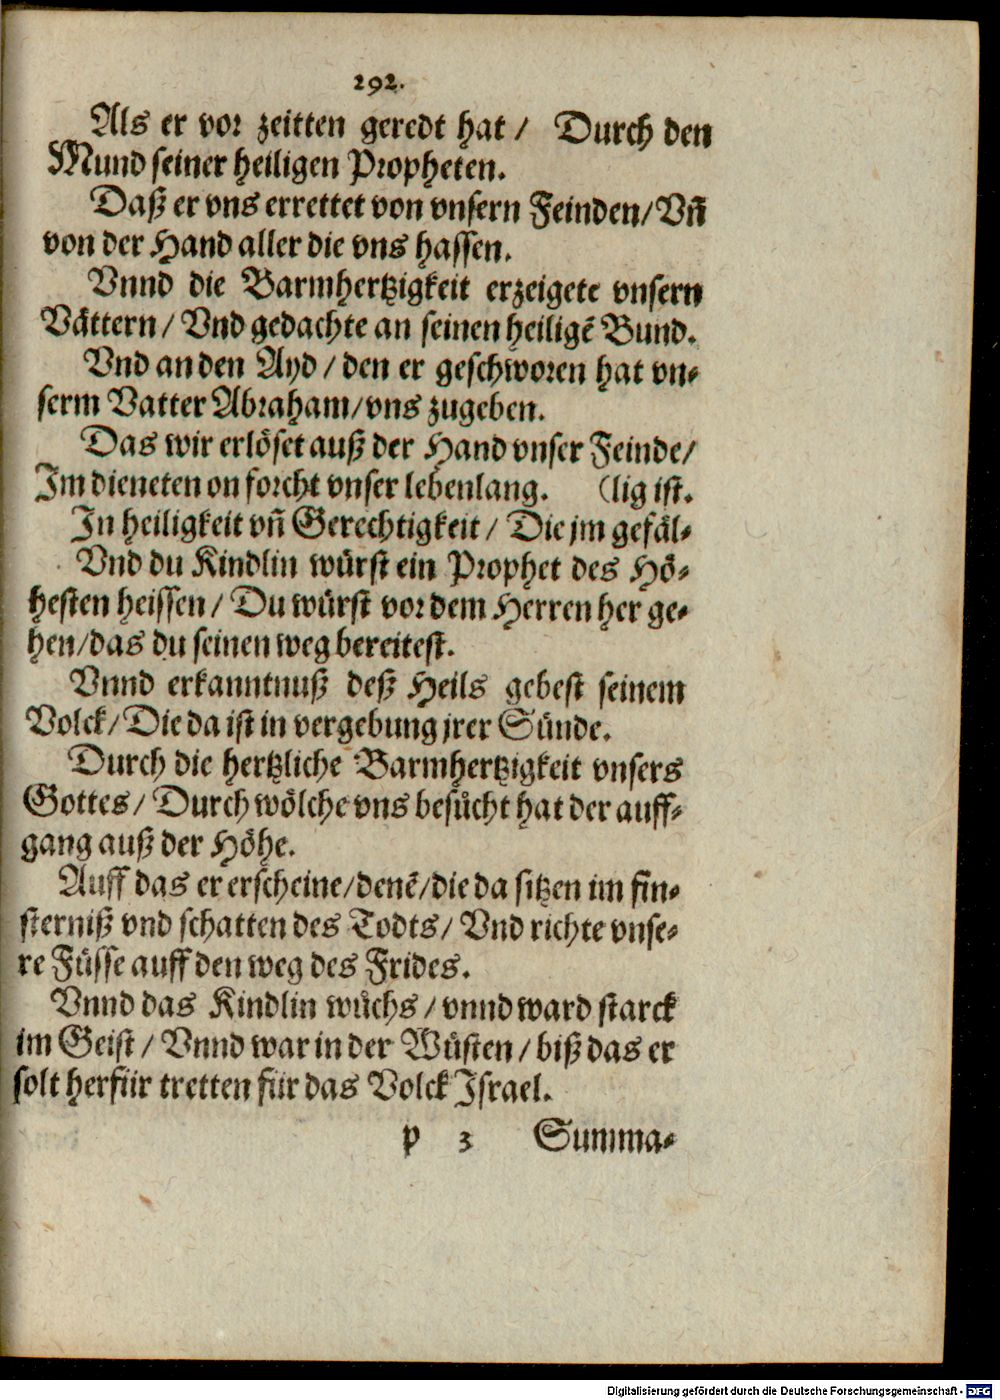 292.
Als er vor zeitten geredt hat / Durch den
Mund seiner heiligen Propheten.
Daß er vns errettet von vnsern Feinden/Vñ
von der Hand aller die vns hassen.
Vnnd die Barmhertzigkeit erzeigete vnsern
Vättern / Vnd gedachte an seinen heiligẽ Bund.
Vnd an den Ayd / den er geschworen hat vn⸗
serm Vatter Abraham/vns zugeben.
Das wir erlöset auß der Hand vnser Feinde/
Im dieneten on forcht vnser lebenlang. (lig ist.
In heiligkeit vñ Gerechtigkeit / Die jm gefäl⸗
Vnd du Kindlin würst ein Prophet des Hö⸗
hesten heissen / Du würst vor dem Herren her ge⸗
hen/das du seinen weg bereitest.
Vnnd erkanntnuß deß Heils gebest seinem
Volck/Die da ist in vergebung jrer Sünde.
Durch die hertzliche Barmhertzigkeit vnsers
Gottes / Durch wölche vns besůcht hat der auff⸗
gang auß der Höhe.
Auff das er erscheine/denẽ/die da sitzen im fin⸗
sterniß vnd schatten des Todts/ Vnd richte vnse⸗
re Füsse auff den weg des Frides.
Vnnd das Kindlin wůchs / vnnd ward starck
im Geist / Vnnd war in der Wüsten / biß das er
solt herfür tretten für das Volck Israel.
p 3 Summa⸗
Digitalisierung gefördert durch die Deutsche Forschungsgemeinschaft - DFG